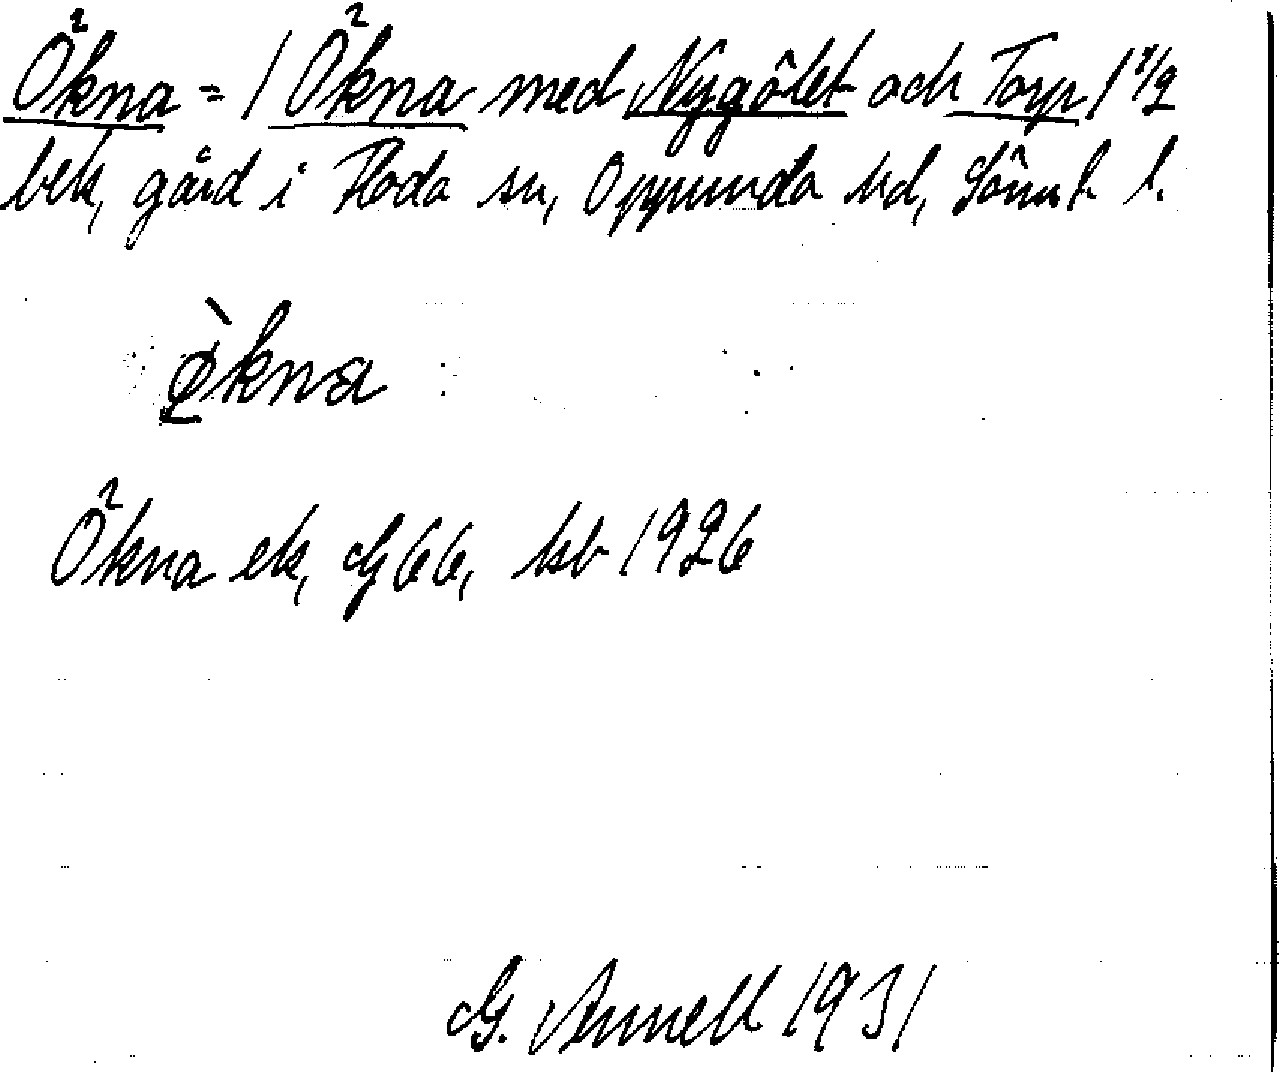 Ökna = / Ökna med Nygölet och Torp / 1 1/2
bek, gård i Floda sn, Oppunda hd, Sörml. l.
ò̢kna
Ökna ek, G 66, kb 1926
G. Annell 1931